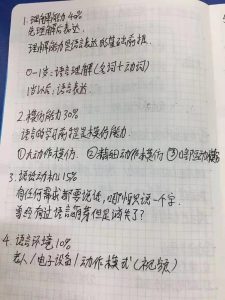 1.理解能力40%
先理解后表达.
理解能力是语言表达的基础前提.
0-1岁:语言理解(名词+动词)
1岁以后,语言表达.
2.模仿能力30%
语言的学习前提是模仿能力.
①大动作模仿 ②精细动作模仿 ③口部运动模仿
3.说话动机15%
有任何需求都要说话,哪怕只说一个字.
曾经有过语言萌芽但是消失了?
4.语言环境10%
老人/电子设备/动作模式(视频)